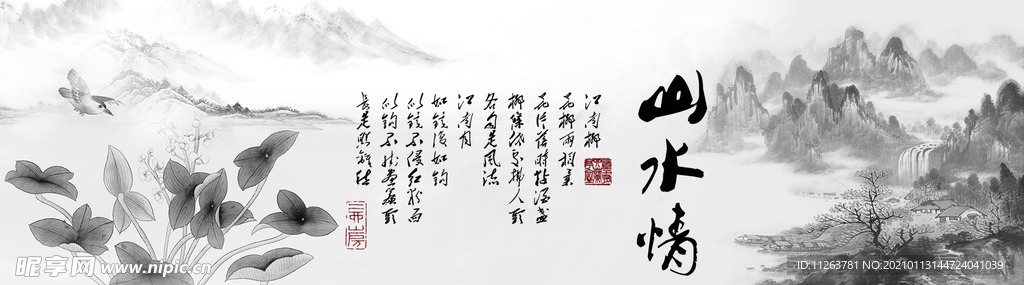 山水情
江南柳
花柳两相柔
花片落时粘酒盏
柳条低处拂人头
各自是风流
江南月
如镜复如钩
似镜不侵红粉面
似钩不挂画帘头
长是照离愁
昵享网 www.nipic.cn
ID:11263781 NO:20210113144724041039